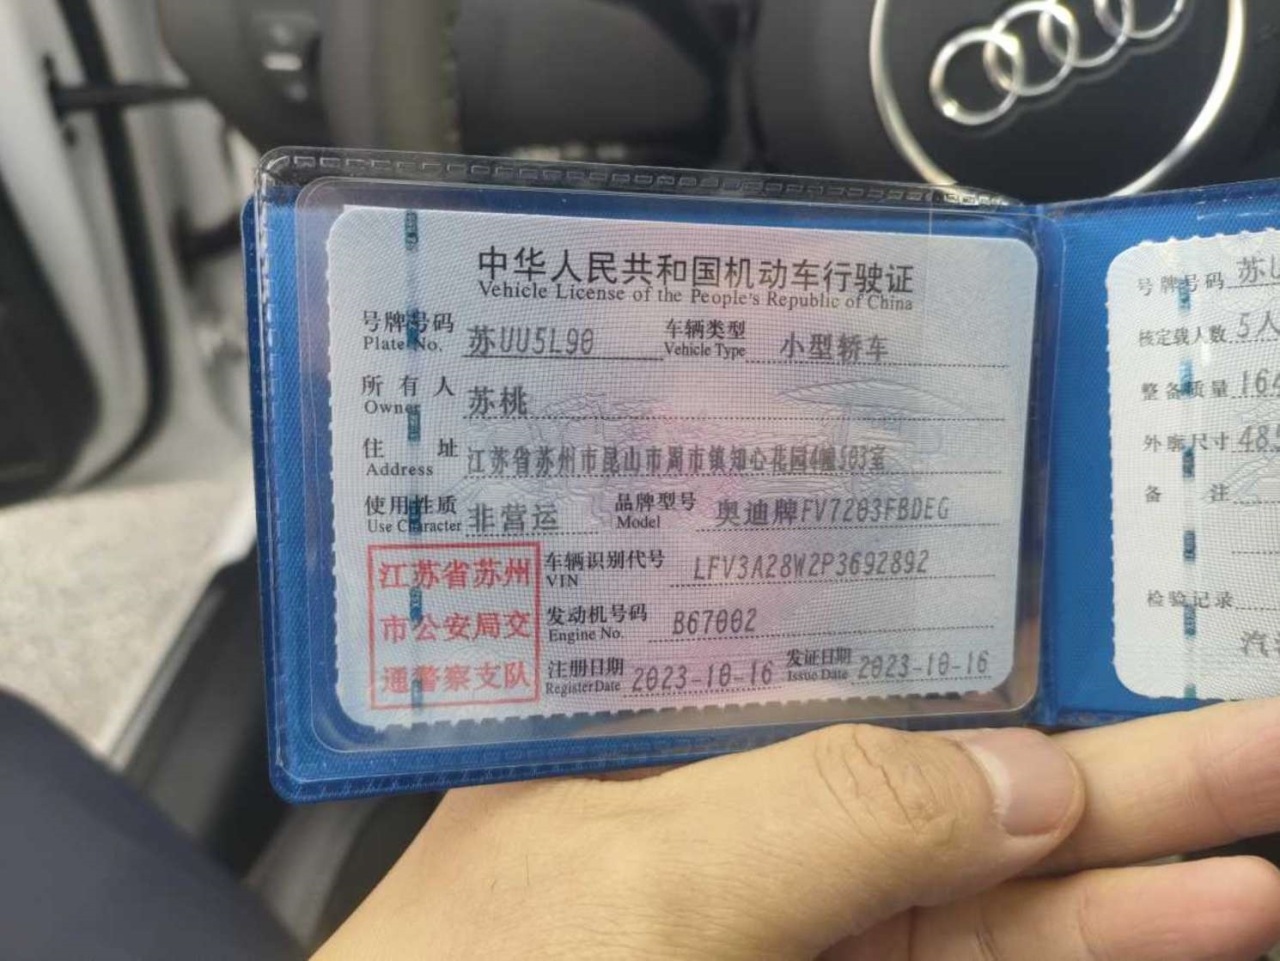 中华人民共和国机动车行驶证
Vehicle License of the People's Republic of China
号牌号码 苏UU5L90 车辆类型 小型轿车
Plate No. Vehicle Type
所有人 苏桃
Owner
住址 江苏省苏州市昆山市周市镇知心花园4幢503室
Address
使用性质 非营运 品牌型号 奥迪牌FV7203FBDEG
Use Character Model
江苏省苏州
市公安局交
通警察支队
车辆识别代号 LFV3A28W2P3692892
VIN
发动机号码 B67002
Engine No.
注册日期 2023-10-16 发证日期 2023-10-16
Register Date Issue Date
号牌号码 苏
核定载人数 5人
整备质量 16
外廓尺寸 48
备注
检验记录
汽